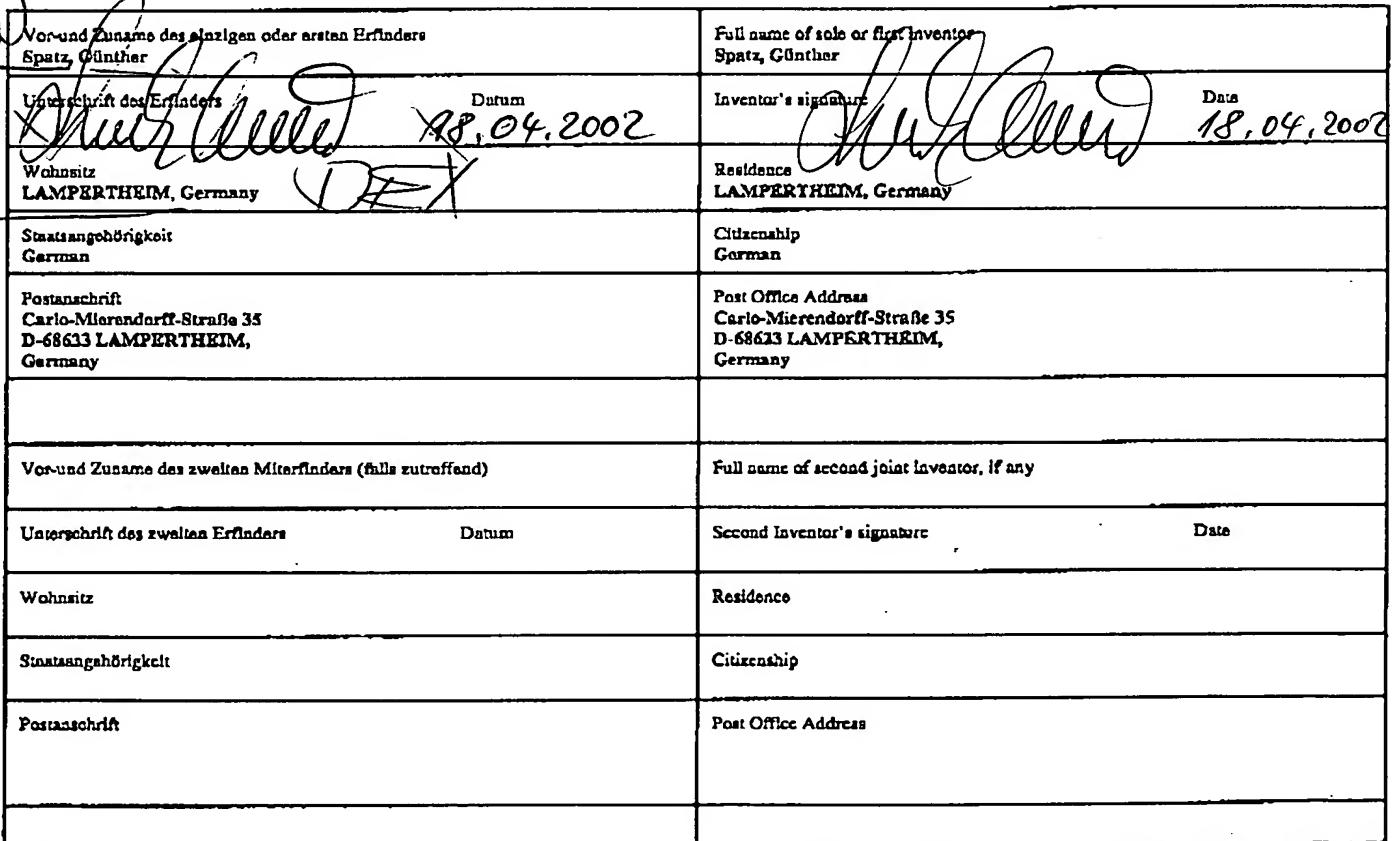 Vor-und Zuname des einzigen oder ersten Erfinders
Spatz, Günther
Full name of sole or first inventor
Spatz, Günther
Unterschrift des Erfinders Datum
18.04.2002
Inventor's signature Date
18.04.2002
Wohnsitz
LAMPERTHEIM, Germany DEX
Residence
LAMPERTHEIM, Germany
Staatsangehörigkeit
German
Citizenship
German
Postanschrift
Carlo-Mierendorff-Straße 35
D-68623 LAMPERTHEIM,
Germany
Post Office Address
Carlo-Mierendorff-Straße 35
D-68623 LAMPERTHEIM,
Germany
Vor-und Zuname des zweiten Miterfinders (falls zutreffend)
Full name of second joint inventor, if any
Unterschrift des zweiten Erfinders Datum
Second Inventor's signature Date
Wohnsitz
Residence
Staatsangehörigkeit
Citizenship
Postanschrift
Post Office Address